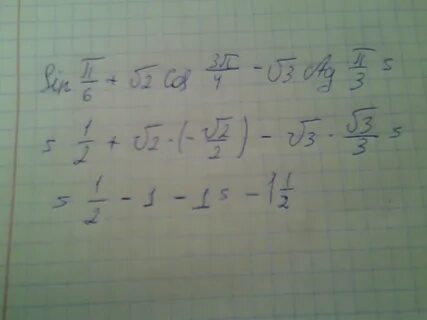 Sin π/6 + √2 Cos 3π/4 - √3 Ctg π/3 =
= 1/2 + √2 · (-√2/2) - √3 · √3/3 =
= 1/2 - 1 - 1 = -1 1/2